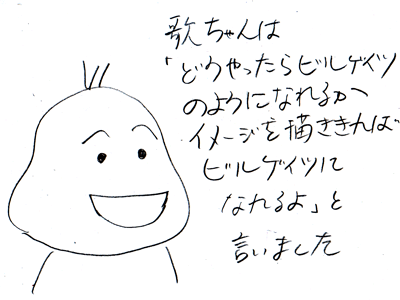 歌ちゃんは
「どうやったらビルゲイツ
のようになれるか
イメージを描ききれば
ビルゲイツに
なれるよ」と
言いました